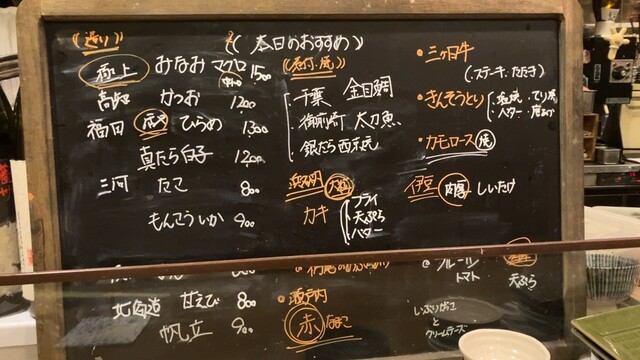 ((造り))
((本日のおすすめ))
極上 みなみマグロ 中トロ 1500
高知 かつお 1200
福岡 ひらめ 1300
真たら白子 1200
三河 たこ 800
もんごういか 900
北海道 甘えび 800
帆立 900
千葉 金目鯛
御前崎 太刀魚
銀だら西京
カキ
フライ
天ぷら
バター
瀬戸内
赤なまこ
・三ヶ日牛
(ステーキ・たたき)
・きんそうとり
塩焼・てり焼
バター・唐あげ
・カモロース 焼
肉厚 しいたけ
@フルーツ
トマト
天ぷら
いぶりがっこ
と
クリームチーズ